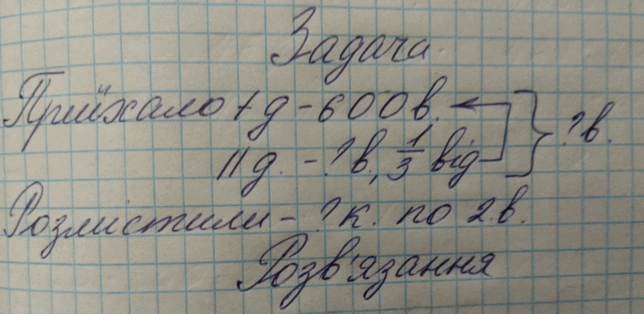 Задача
Приїхало І д - 600 в. ?в.
ІІ д. - ? в., 1/3 від
Розмістили - ? к. по 2 в.
Розв'язання